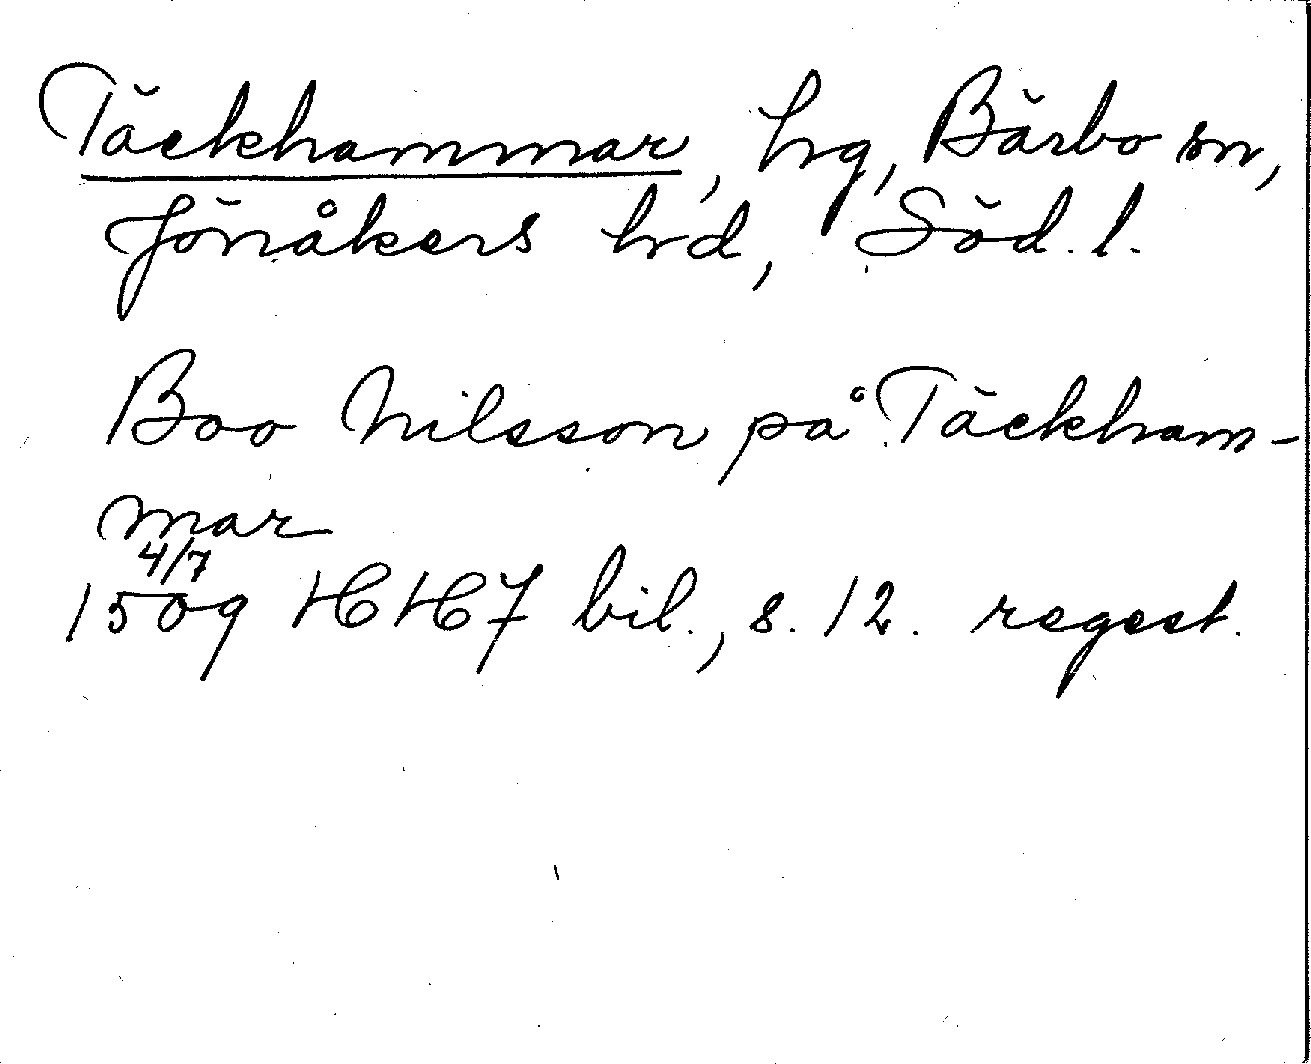 Täckhammar, hg, Bärbo sn,
Jönåkers hd, Söd. l.
Boo Nilsson på Täckham-
mar
4/7
1509 HH7 bil., s. 12. regest.